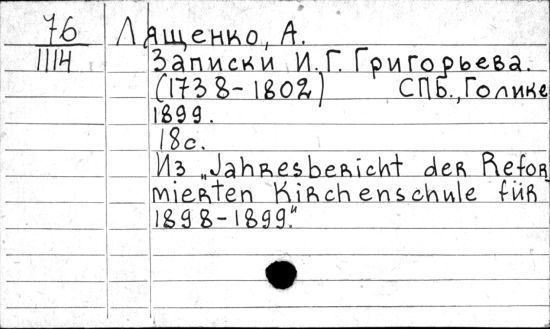 76
1114
Лященко, А.
Записки И.Г. Григорьева.
(1738-1802) СПБ., Голике
1899.
18с.
Из „Jahresbericht der Refor
mierten Kirchenschule für
1898-1899."